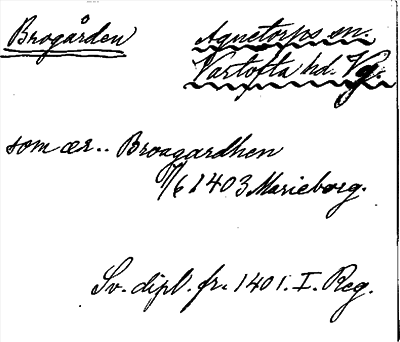 Brogården
Agnetorps sn.
Vartofta hd. Vg.
som ær.. Broagardhen
1/6 1403 Marieborg.
Sv. dipl. fr. 1401. I. Reg.